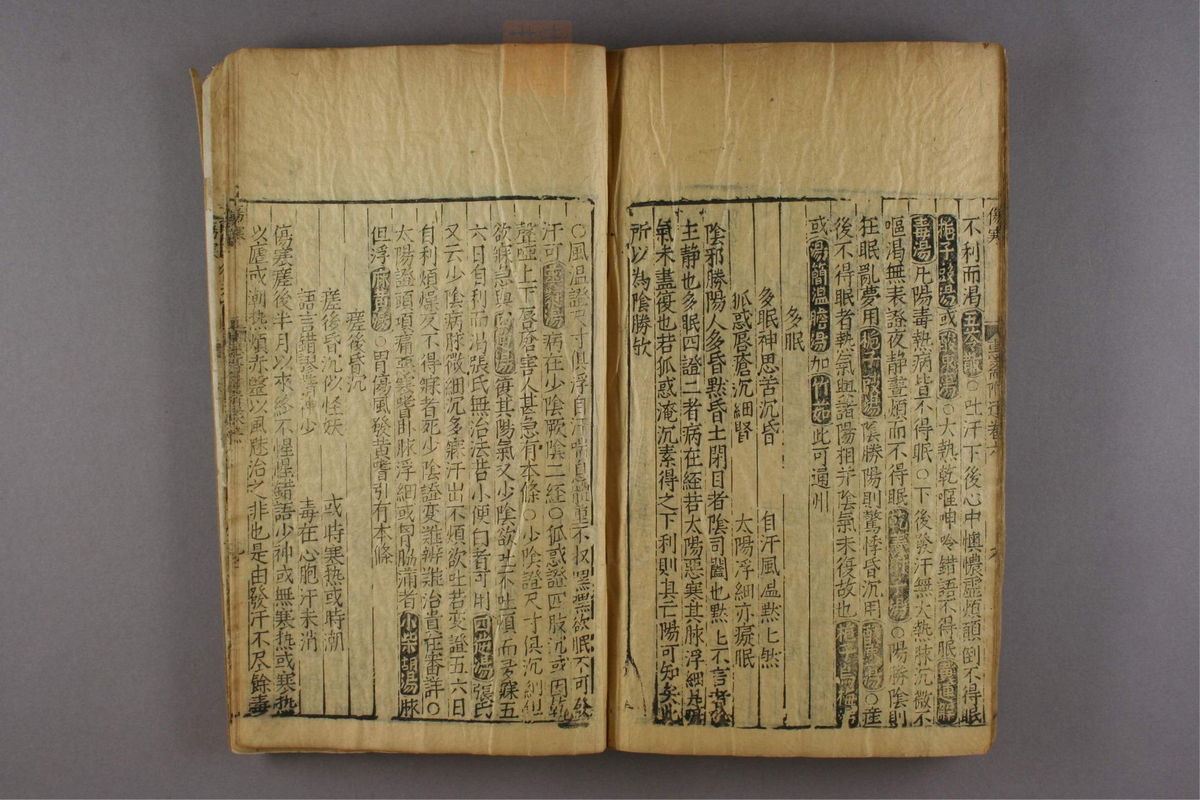 不利而渴五苓散○吐汗下後心中懊憹虛煩顛倒不得眠
梔子豉湯或酸棗湯○大熱乾嘔呻吟錯語不得眠
毒湯凡陽毒熱病皆不得眠○下後發汗無大熱脉沉微不
嘔渴無表證夜靜晝煩而不得眠○陽勝陰則
狂眠亂夢用梔子豉湯陰勝陽則驚悸昏沉用○産
後不得眠者熱氣與諸陽相并陰氣未復故也
或湯簡温膽湯加竹茹此可通州
多眠
多眠神思苦沉昏 自汗風温黙々然
狐惑唇瘡沉細腎 太陽浮細亦癡眠
陰邪勝陽人多昏黙昏士閉目者陰司闔也黙々不言者
主静也多眠四證二者病在經若太陽惡寒其脉浮細是
氣未盡復也若狐惑淹沉素得之下利則其亡陽可知矣此
所以為陰勝欤
○風温證尺寸俱浮自汗喘息體重不收黙黙欲眠不可發
汗可病在少陰厥陰二經○狐惑證四肢沉或因
聲啞上下唇瘡害人甚急有本條○少陰證尺寸俱沉細但
欲寐急與湯復其陽氣又少陰欲吐不吐煩而多寐五
六日自利而渴張氏無治法若小便白者可用四逆湯張氏
又云少陰病脉微細沉多寐汗出不煩欲吐若變證五六日
自利煩燥反不得寐者死少陰證變難辨難治貴在審詳○
太陽證頭項痛惡寒嗜臥脉浮細或胷脇滿者小柴胡湯脉
但浮麻黄湯○胃傷風發黄嘗引有本條
瘥後昏沉
瘥後昏沉似怪妖 或時寒熱或時潮
語言錯謬精神少 毒在心胞汗未消
傷寒瘥後半月以來終不惺惺錯語少神或無寒熱或寒熱
以瘧或潮熱頰赤盤以風魅治之非也是由發汗不尽餘毒